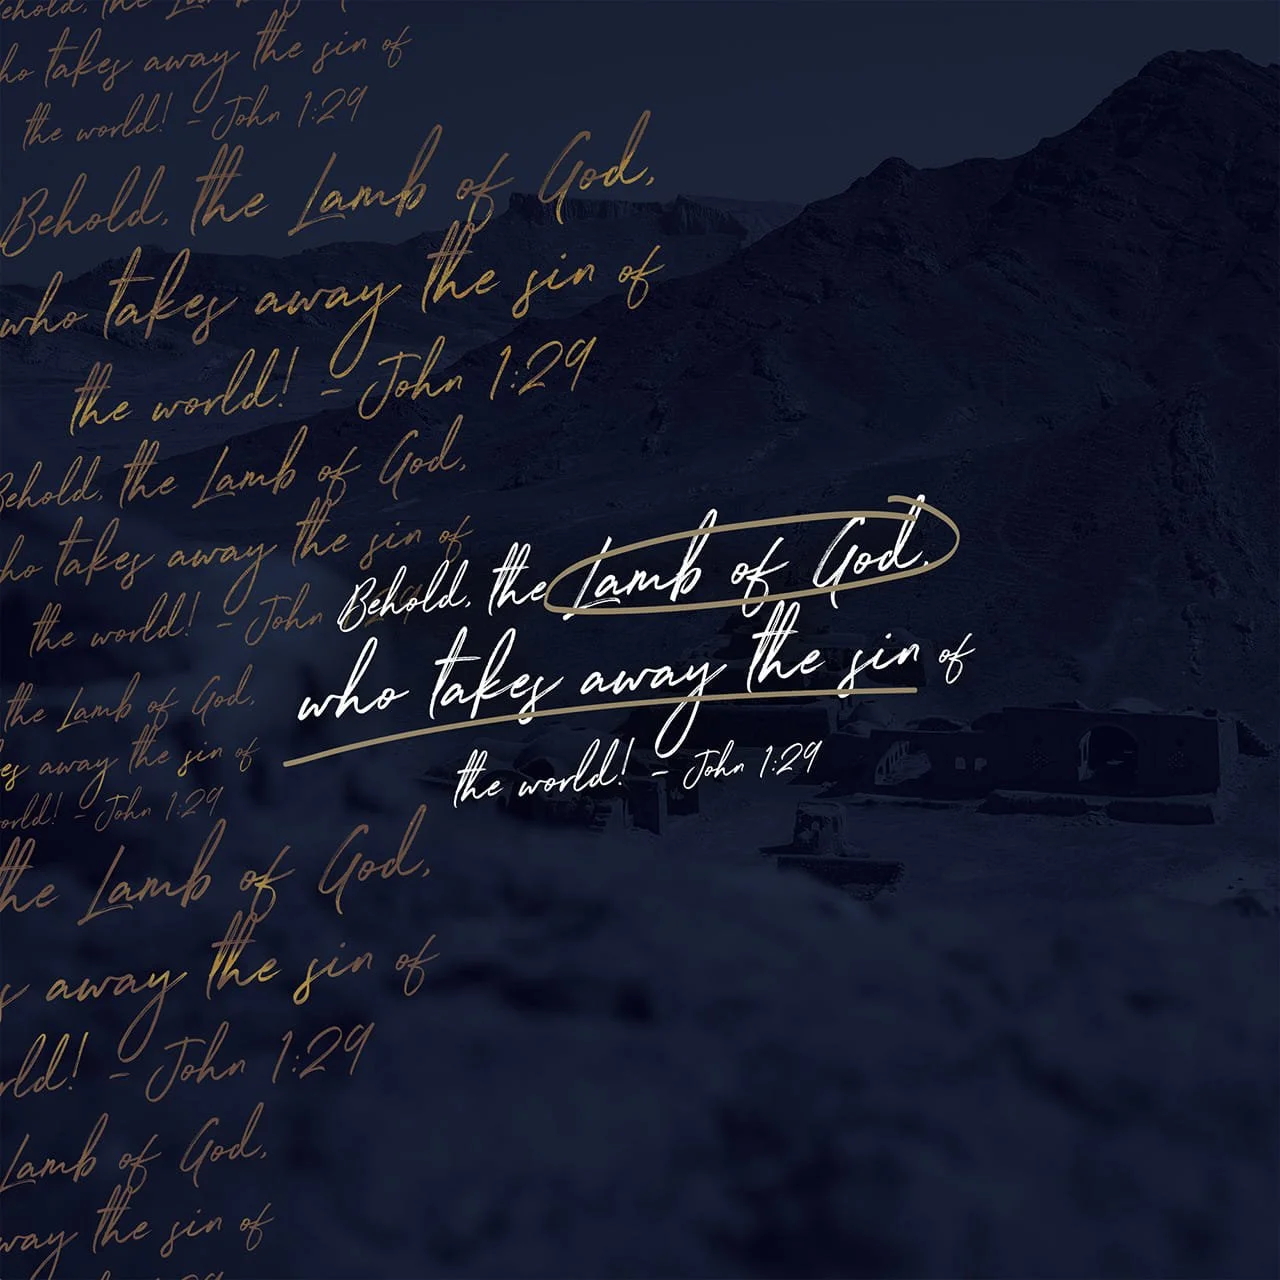 ehold, the Lamb of G
ho takes away the sin of
the world! - John 1:29
Behold, the Lamb of God,
who takes away the sin of
the world! - John 1:29
Behold, the Lamb of God,
ho takes away the sin of
the world! - John 1:29
Behold, the Lamb of God,
who takes away the sin of
the world! - John 1:29
the Lamb of God,
es away the sin of
orld! - John 1:29
the Lamb of God,
s away the sin of
rld! - John 1:29
Lamb of God,
way the sin of
John 1:29